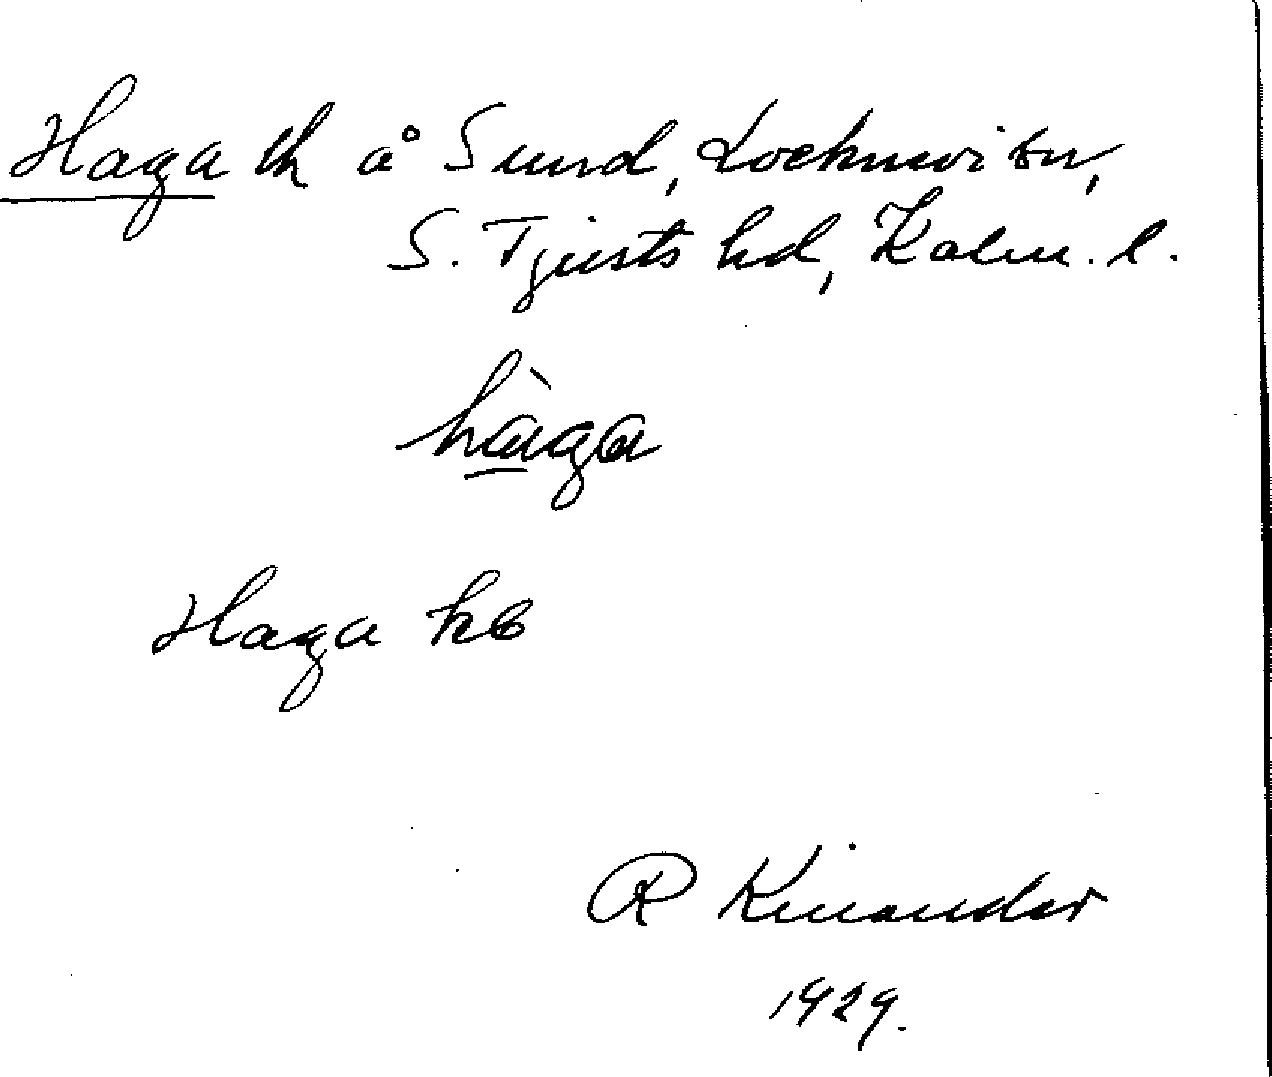 Haga lh å Sund, Locknevi sn,
S. Tjusts hd, Kalm. l.
hàga
Haga kb
R Kinander
1929.